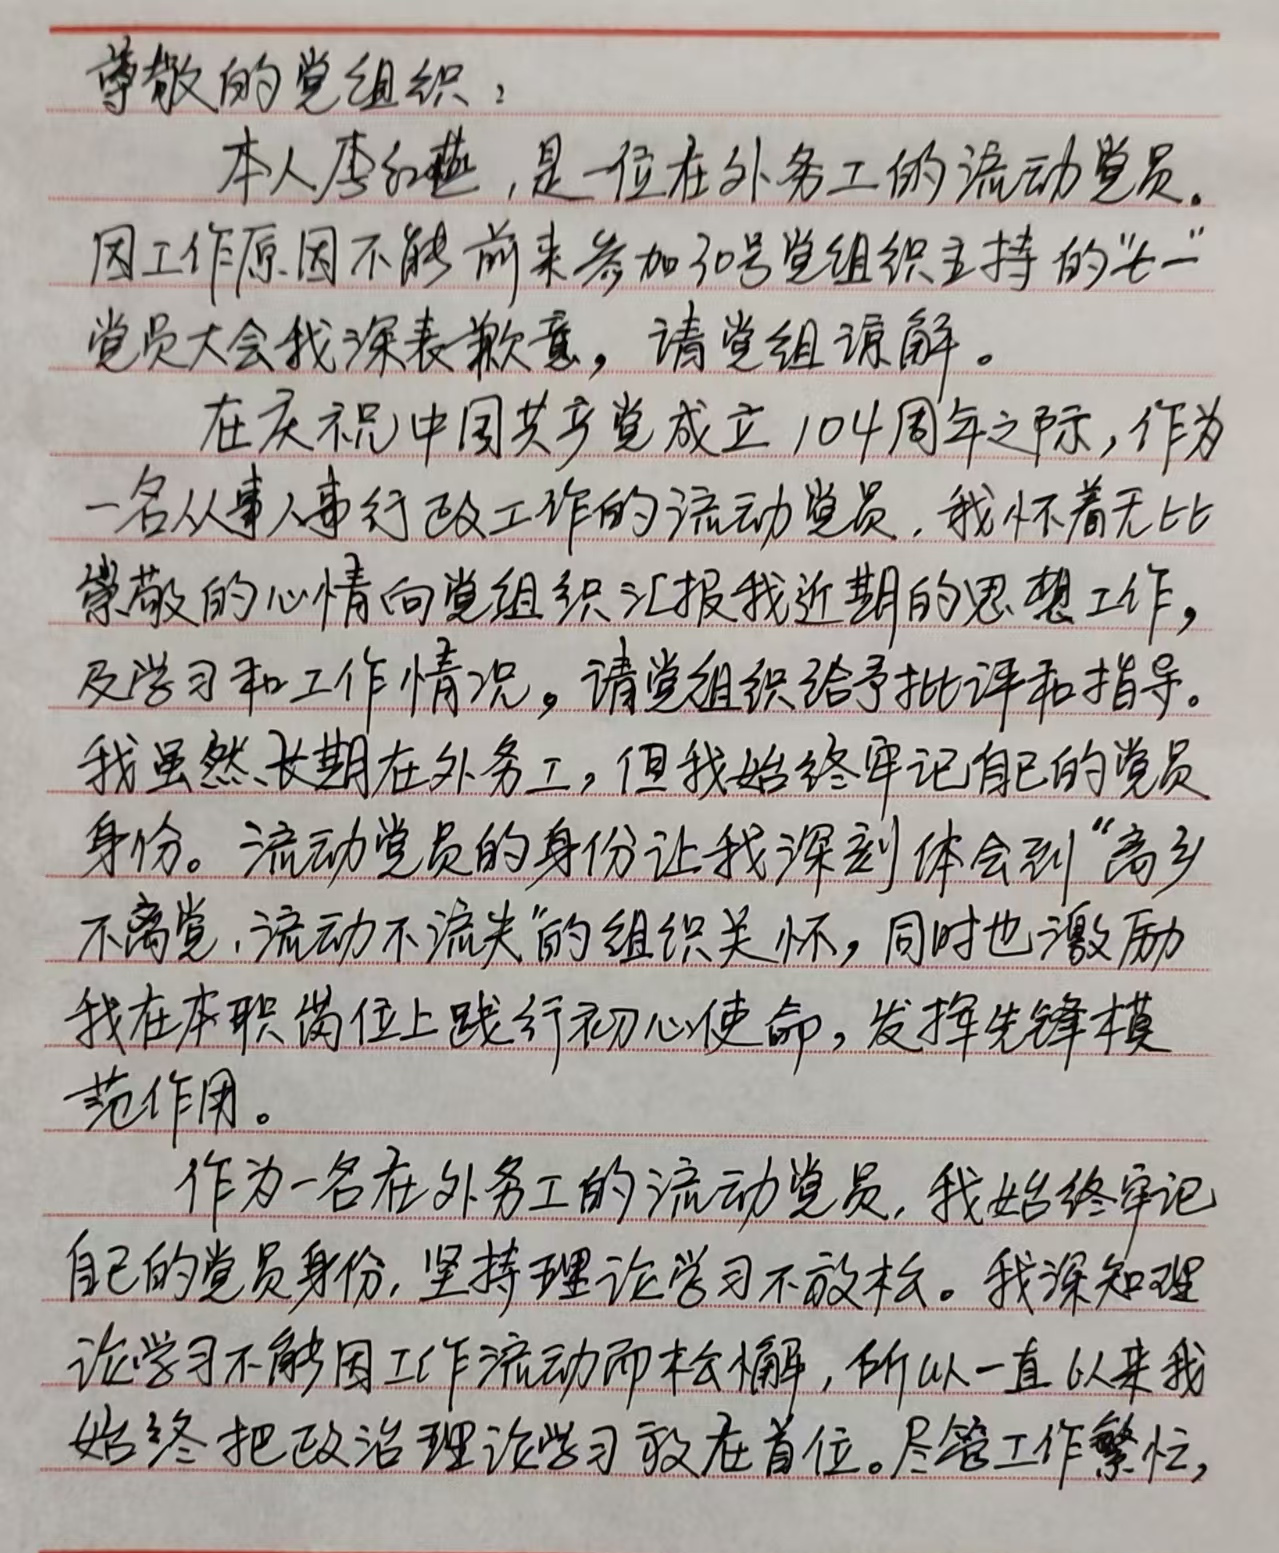 尊敬的党组织：
本人李红燕，是一位在外务工的流动党员。
因工作原因不能前来参加30号党组织主持的“七一”
党员大会我深表歉意，请党组谅解。
在庆祝中国共产党成立104周年之际，作为
一名从事人事行政工作的流动党员，我怀着无比
崇敬的心情向党组织汇报我近期的思想工作，
及学习和工作情况。请党组织给予批评和指导。
我虽然长期在外务工，但我始终牢记自己的党员
身份。流动党员的身份让我深刻体会到“离乡
不离党，流动不流失”的组织关怀，同时也激励
我在本职岗位上践行初心使命，发挥先锋模
范作用。
作为一名在外务工的流动党员，我始终牢记
自己的党员身份，坚持理论学习不放松。我深知理
论学习不能因工作流动而松懈，所以一直以来我
始终把政治理论学习放在首位。尽管工作繁忙，